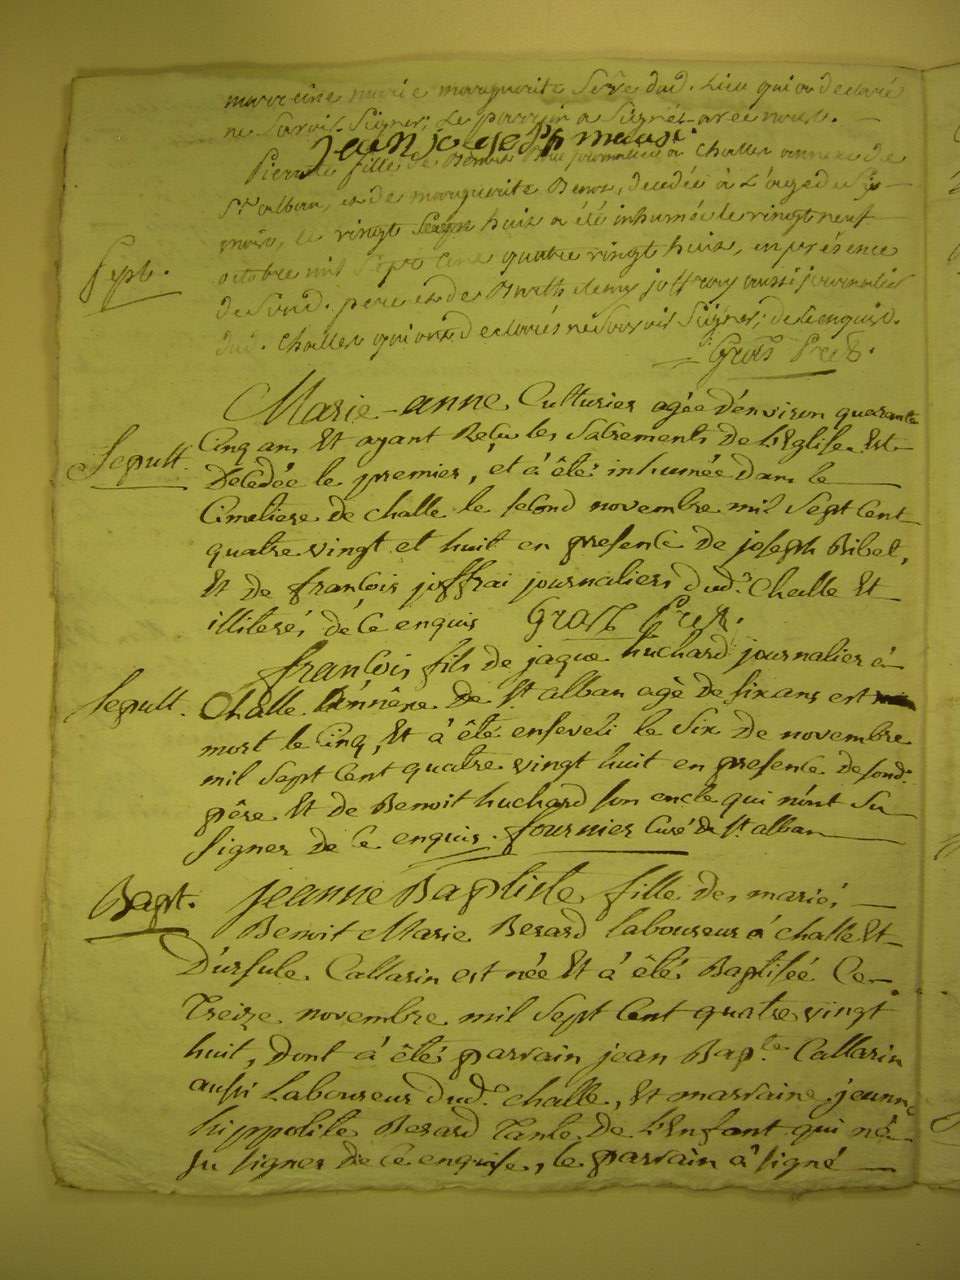 marreine marie marguerite Serre dud. Lieu qui a declaré
ne Savoir Signer; Le parrain a Signé avec nous.
jean joseph
Pierrette fille de Benoit journalier a Challes annexe de
St alban, et de marguerite Benoz, decedée à L'age de Six
mois, le vingt huit a été inhumée le vingt neuf
octobre mil Sept Cent quatre vingt huit, en présence
de Sond. pere et de Barthelemy joffray aussi journalier
dud. Challes qui ont declarés ne Savoir Signer; de Ce enquis.
Sept.
Gras
Marie-anne Culturier agée d'environ quarante
Sepult.
Cinq ans Et ayant Reçu les Sacrements de l'Eglise Est
Décédée le premier, et á êté inhumée dans le
Cimetiere de Challe le second novembre mil Sept Cent
quatre vingt et huit en presence de joseph Ribet,
Et de françois joffrai journaliers dud. Challe Et
illiterés de Ce enquis
françois fils de jaque huchard journalier á
Sepult.
Challe l'ánnêxe de St alban agé de six ans est
mort le Cinq, Et á êté enseveli le Six de novembre
mil Sept Cent quatre vingt huit en presence de sond.
pêre Et de Benoit huchard son oncle qui n'ont Su
Signer de Ce enquis. fournier Curé de St alban
Bapt.
jeanne Baptiste fille des mariés
Benoit Marie Berard laboureur á Challe Et
D'ursule Callarin est née Et á êté Baptisée Ce
Treize novembre mil Sept Cent quatre vingt
huit, Dont á êté parrain jean Bapte Callarin
aussi Laboureur dud. Challe, Et marraine jeanne
hippolite Berard Tante de l'Enfant qui n'á
su signer de Ce enquise, le parrain á signé